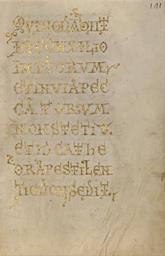 QUINONABIIT
INCONSILIO
IMPIORUM
ETINVIAPEC
CATORUM
NONSTETIT.
ETINCATHE
DRAPESTILEN
TIAENONSEDIT.